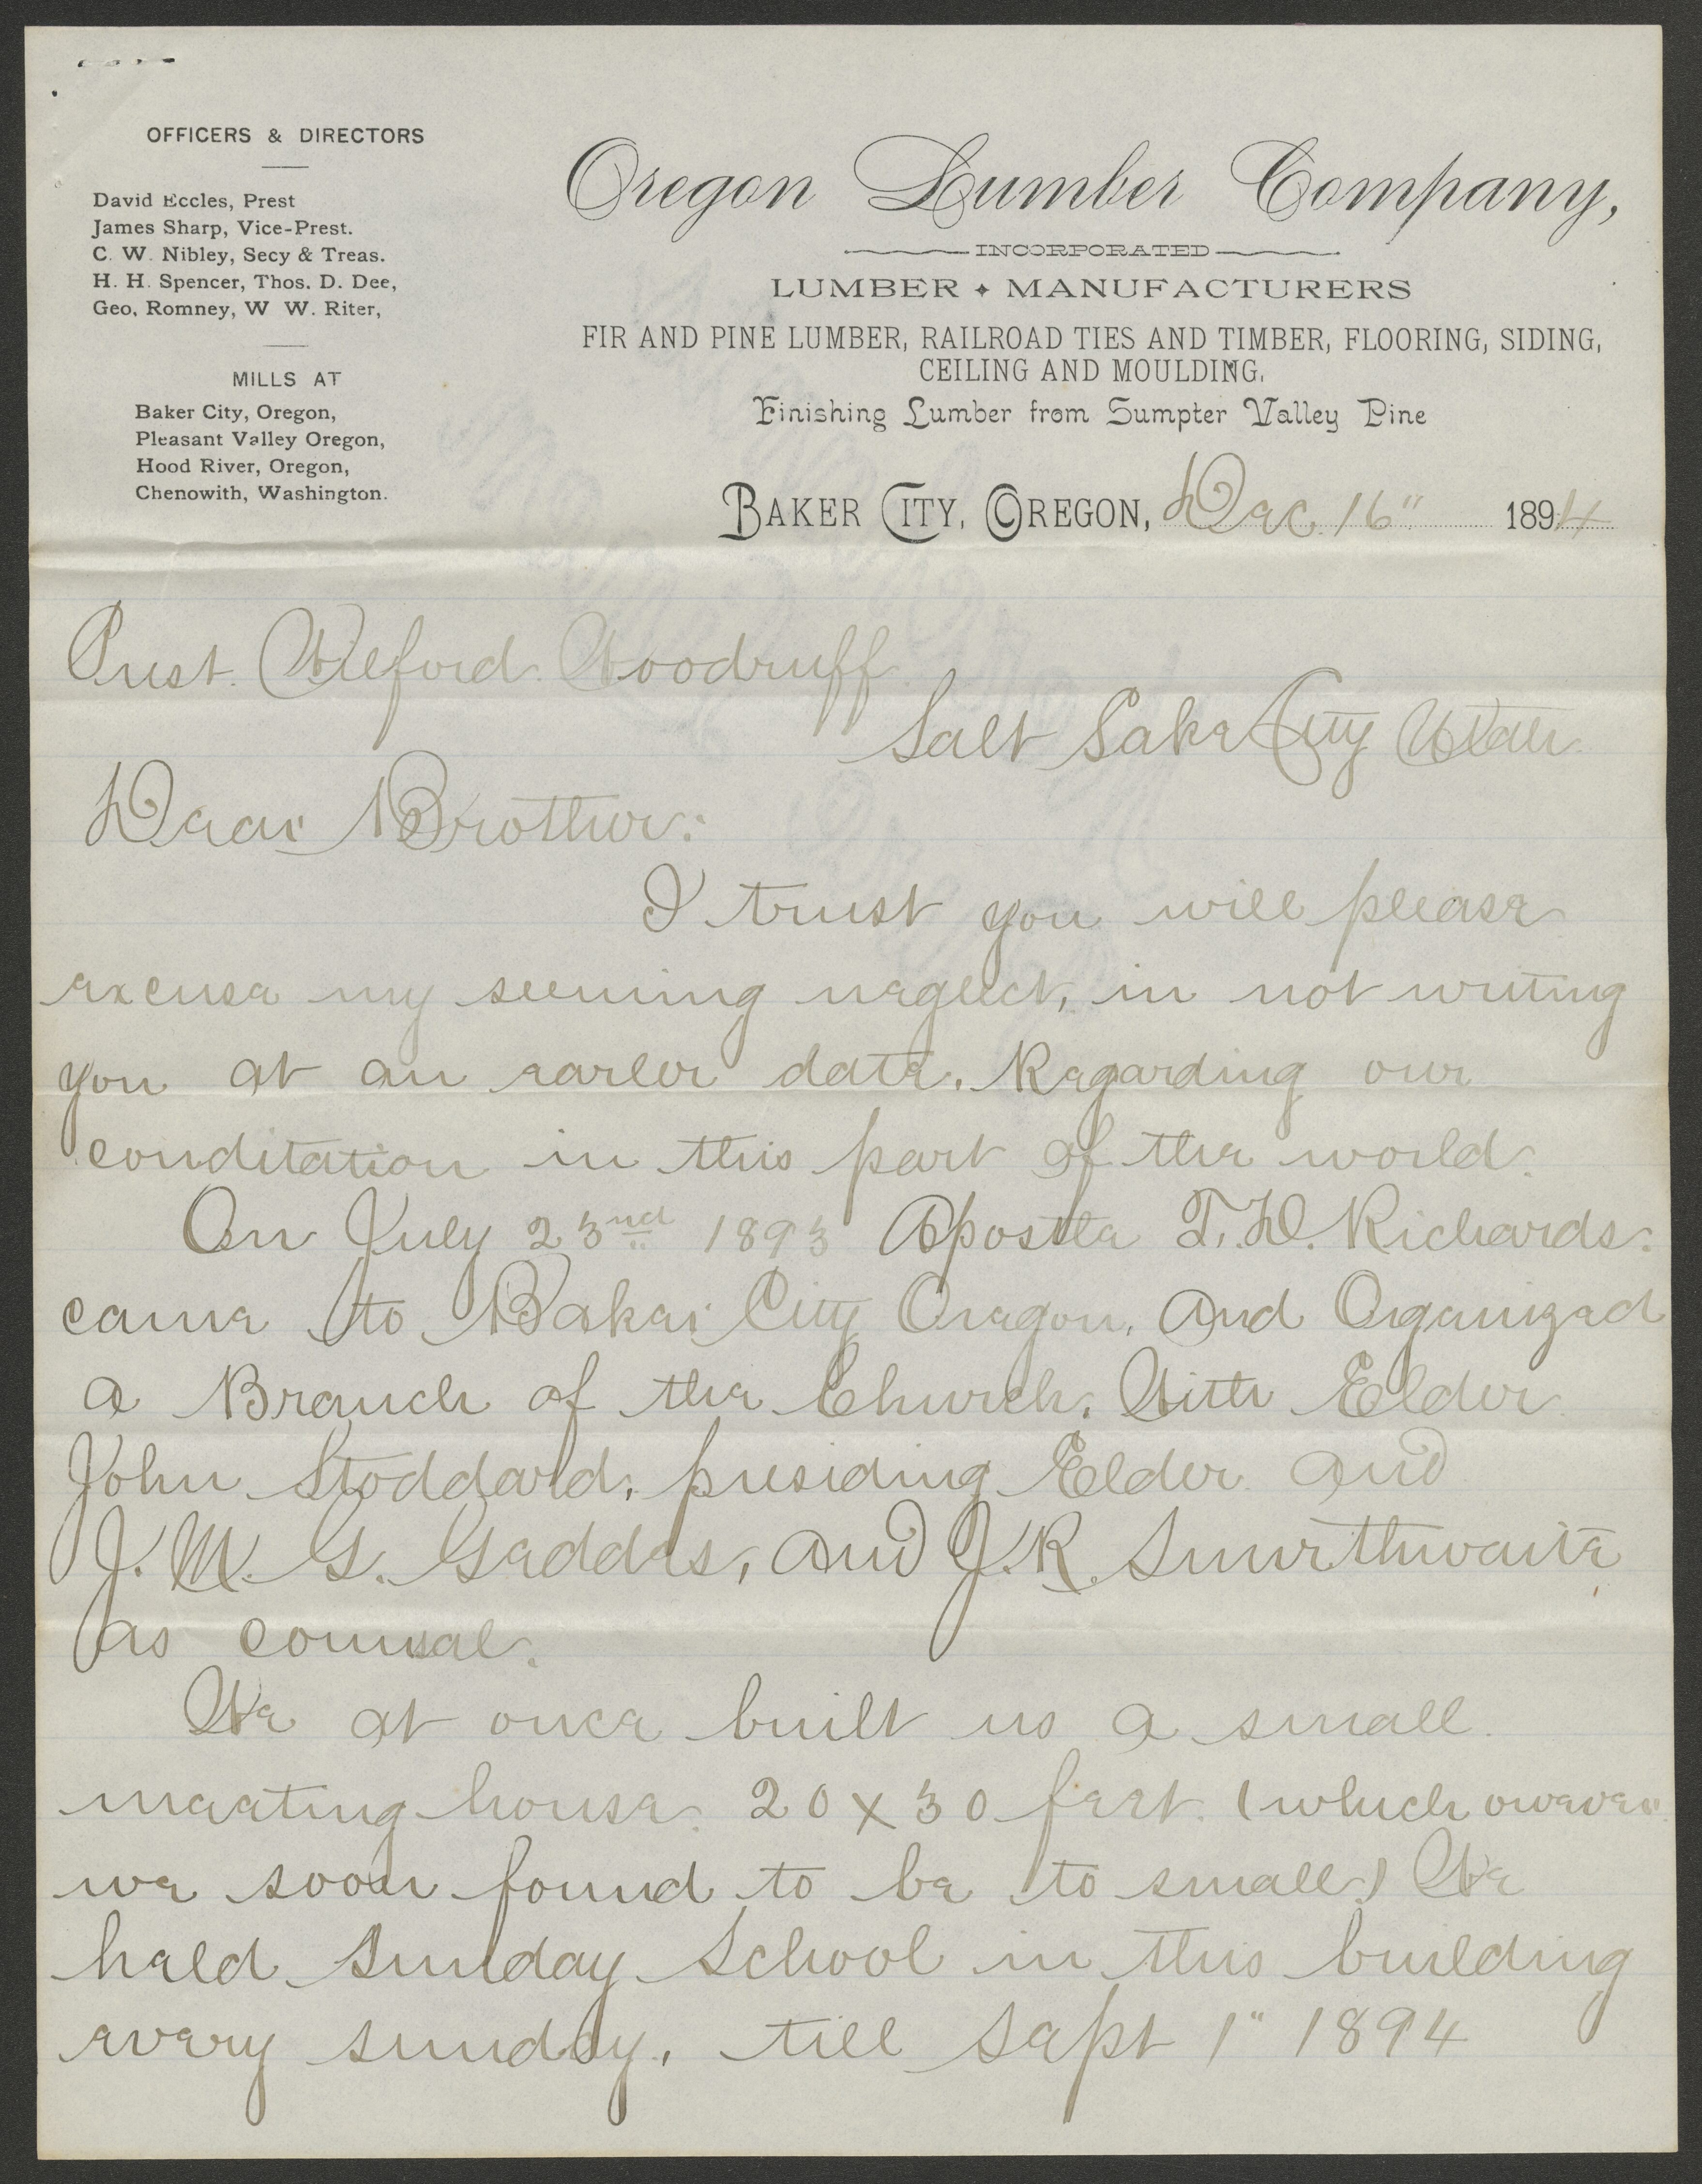 OFFICERS & DIRECTORS
David Eccles, Prest
James Sharp, Vice-Prest.
C. W. Nibley, Secy & Treas.
H. H. Spencer, Thos. D. Dee,
Geo, Romney, W W. Riter,
MILLS AT
Baker City, Oregon,
Pleasant Valley Oregon,
Hood River, Oregon,
Chenowith, Washington.
Oregon Lumber Company,
INCORPORATED
LUMBER ✦ MANUFACTURERS
FIR AND PINE LUMBER, RAILROAD TIES AND TIMBER, FLOORING, SIDING,
CEILING AND MOULDING.
Finishing Lumber from Sumpter Valley Pine
BAKER CITY, OREGON, Dec. 16" 1894
Prest. Wilford. Woodruff
Salt Lake City Utah.
Dear Brother:
I trust you will please
excuse my seeming neglect, in not writing
you at an earler date. Regarding our
conditation in this part of the world.
On July 23nd 1893 Apostle F. D. Richards.
came to Baker City Oregon, and Organized
a Branch of the Church, With Elder
John Stoddard, presiding Elder and
J. M. G. Geddes, and J. R. Smurthwaite
as counsal.
We at once built us a small
meeting house. 20 x 30 feet. (which owever
we soon found to be to small) We
held Sunday School in this building
every sunday, till Sept 1" 1894